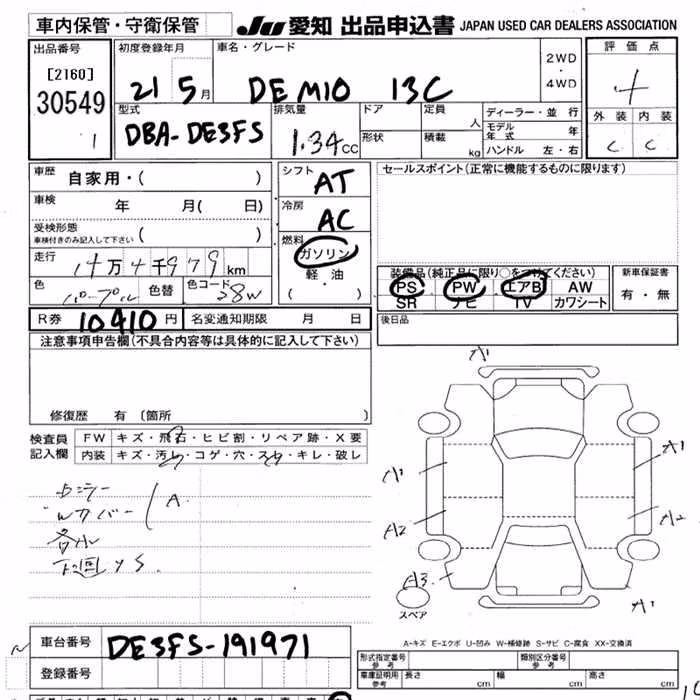 車内保管・守衛保管
JU 愛知 出品申込書 JAPAN USED CAR DEALERS ASSOCIATION
出品番号
[2160]
30549
1
初度登録年月
21 5 月
車名・グレード
DEMIO 13C
2WD
・
4WD
評価点
4
外装 内装
C C
型式
DBA-DE3FS
排気量
1.34 cc
ドア
形状
定員 人
積載 kg
ディーラー・並行
モデル年式 年
ハンドル 左・右
車歴 自家用・( )
車検 年 月( 日)
受検形態
車検付きのみ記入して下さい ( )
走行 14万4千979 km
色 パープル 色替 色コード 28W
シフト AT
冷房 AC
燃料
ガソリン
軽・油
( )
R券 10410 円 名変通知期限 月 日
セールスポイント(正常に機能するものに限ります)
装備品(純正品に限り○をつけてください)
PS PW エアB AW
SR ナビ TV カワシート
新車保証書
有・無
後日品
注意事項申告欄(不具合内容等は具体的に記入して下さい)
修復歴 有 〔箇所 〕
検査員
記入欄
FW キズ・飛石・ヒビ割・リペア跡・X要
内装 キズ・汚れ・コゲ・穴・スレ・キレ・破レ
Wカバー
A
各小
下回りS
A1
A1
A1
A2
A2
A3
A1
スペア
A-キズ E-エクボ U-凹み W-補修跡 S-サビ C-腐食 XX-交換済
車台番号 DE3FS-191971
登録番号
形式指定番号 参考
類別区分番号 参考
車庫証明用 参考 長さ cm 幅 cm 高さ cm